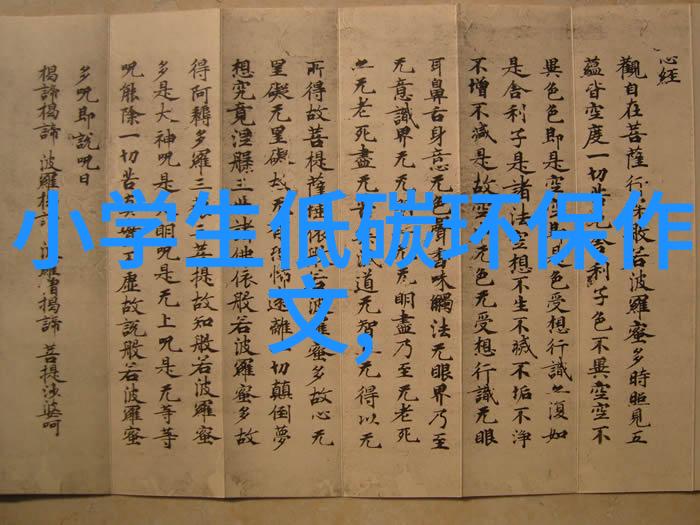 小学生低碳环保作
文,
心经
觀自在菩薩行深般若波羅蜜多時照見五
蘊皆空度一切苦厄舍利子色不異空空不
異色色即是空空即是色受想行識亦復如
是舍利子是諸法空想不生不滅不垢不淨
不增不減是故空中无色无受想行識无眼
耳鼻舌身意无色聲香味觸法无眼界乃至
无意識界无无明亦无无明盡乃至无老死
亦无老死盡无苦集滅道无智亦无得以无
所得故菩提薩埵依般若波羅蜜多故心无
罣礙无罣礙故无有恐怖遠離一切顛倒夢
想究竟涅槃三世諸佛依般若波羅蜜多故
得阿耨多羅三藐三菩提故知般若波羅蜜
多是大神呪是大明呪是无上呪是无等等
呪能除一切苦真實不虛故說般若波羅蜜
多呪即說呪曰
揭諦揭諦 波羅揭諦 波羅僧揭諦 菩提娑婆呵